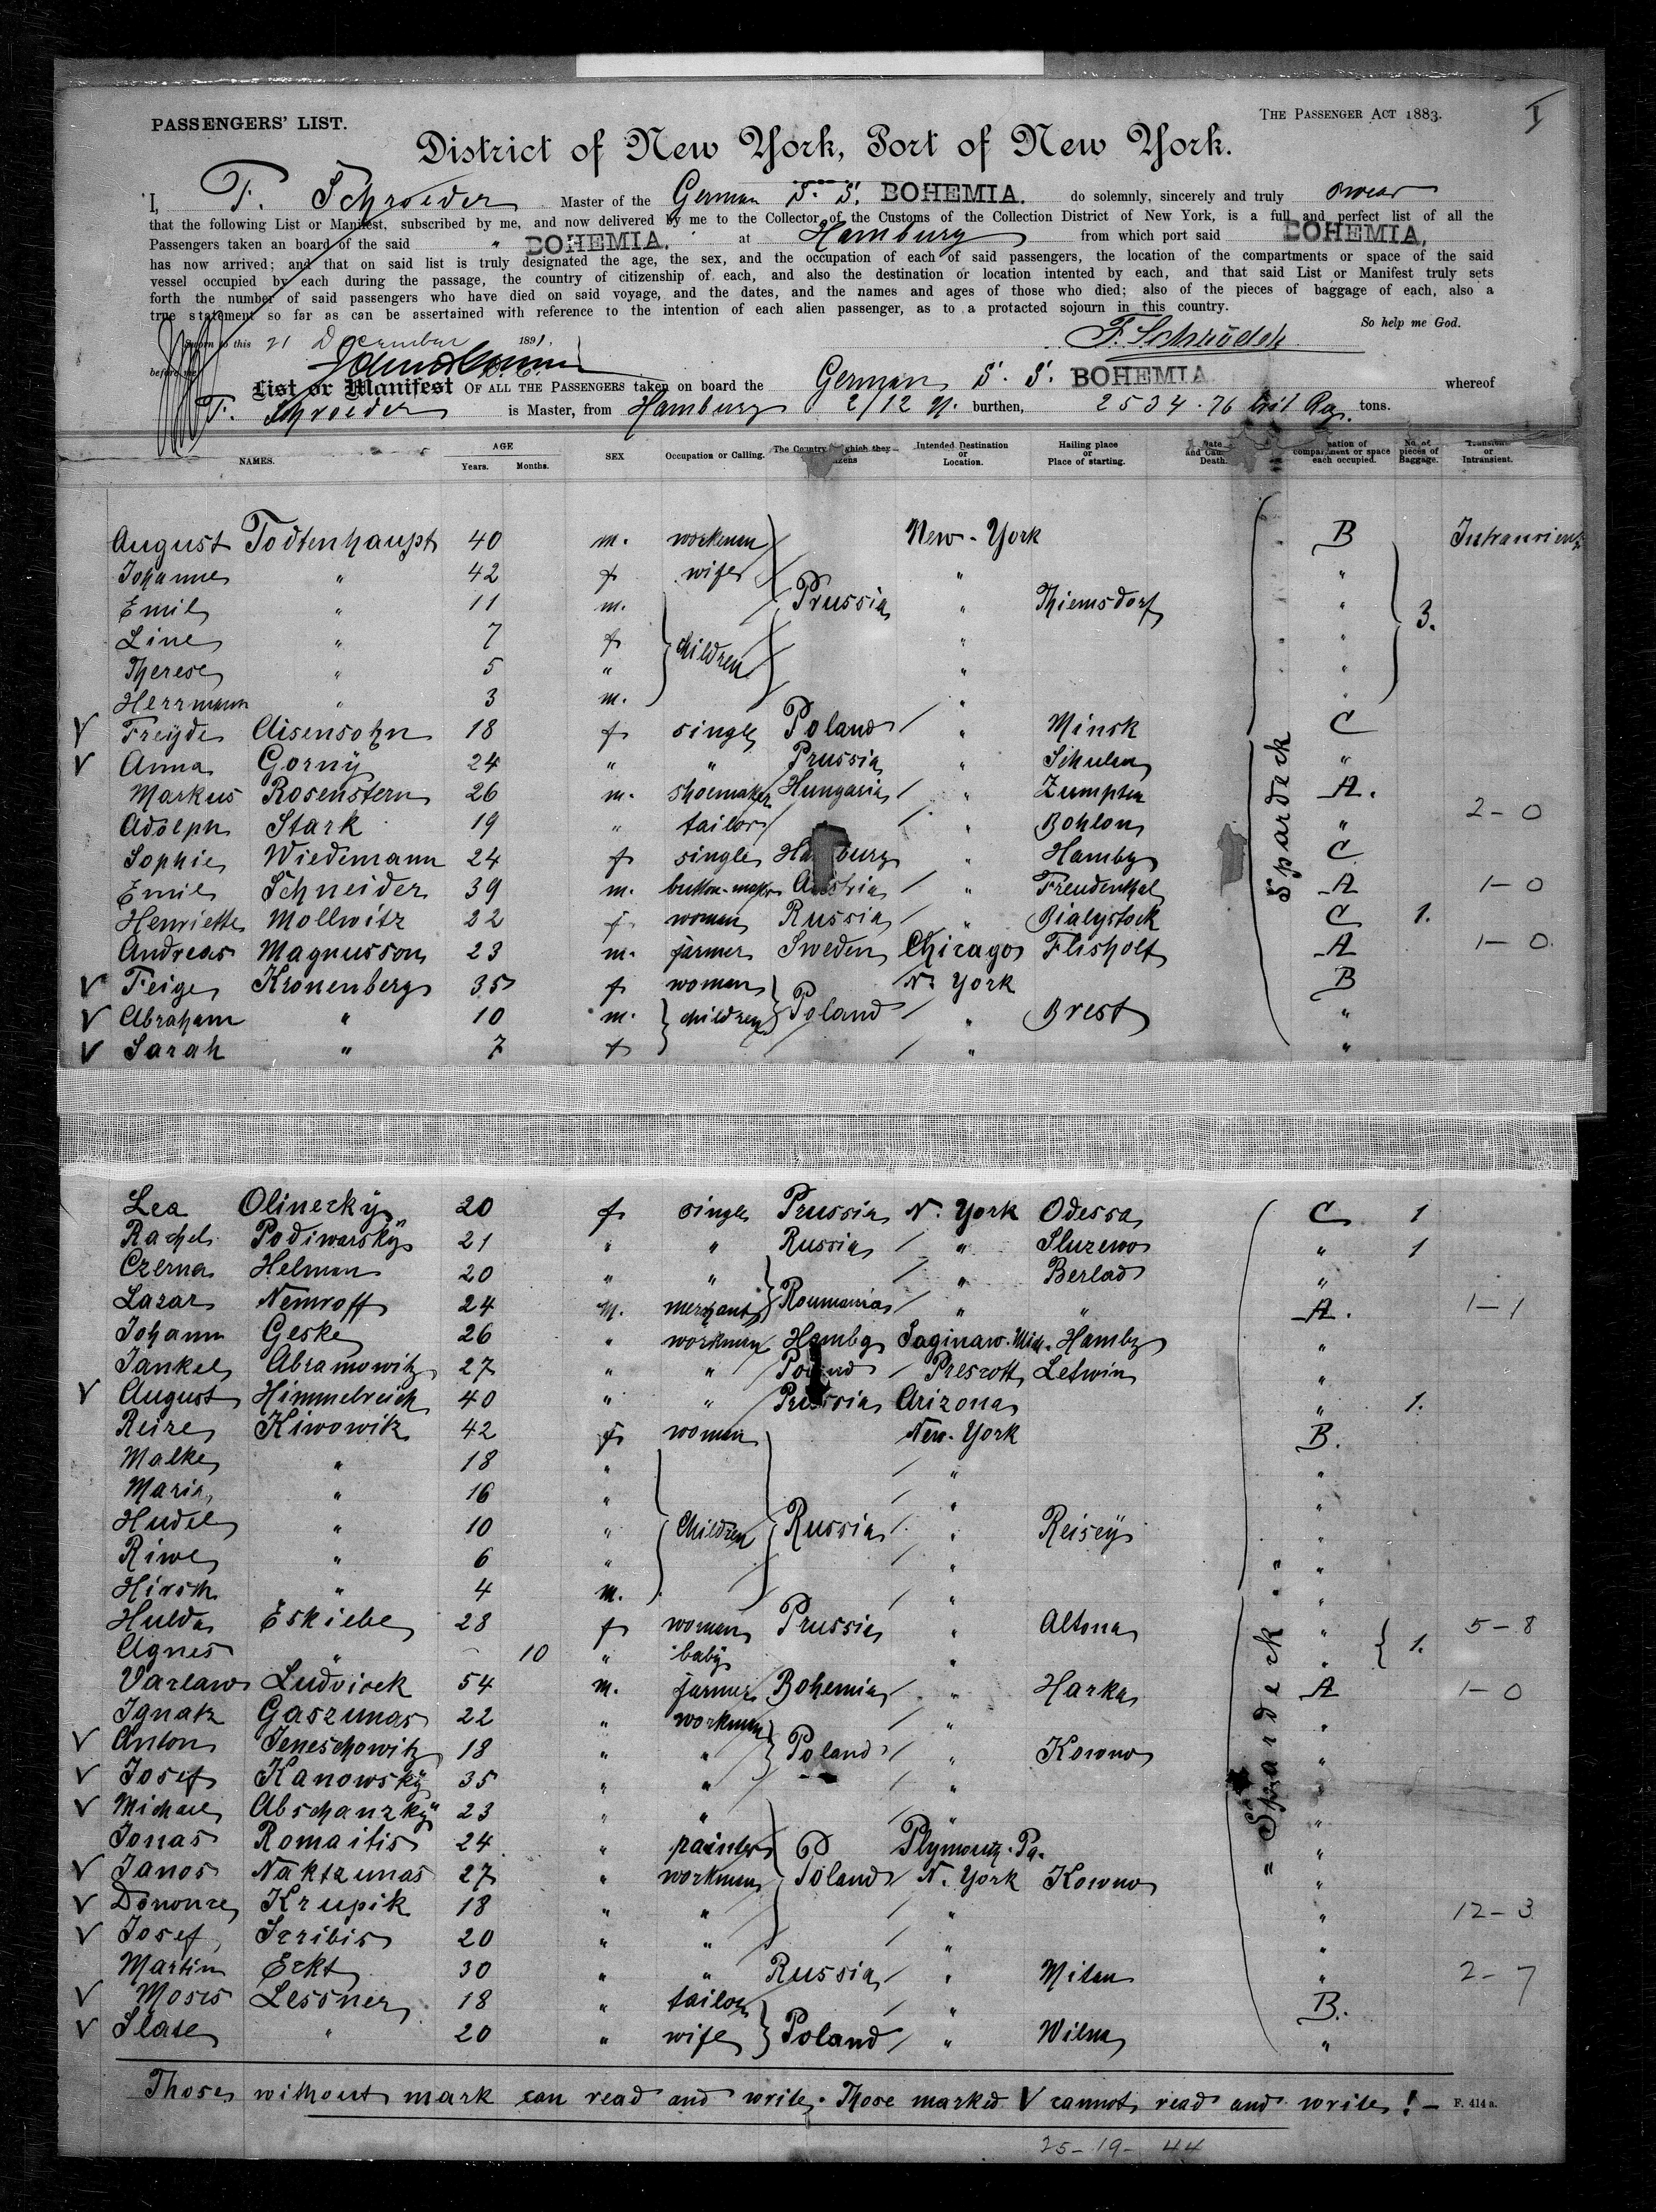 PASSENGERS' LIST.
THE PASSENGER ACT 1883.
I
District of New York, Port of New York.
I, F. Schroeder Master of the German S. S. BOHEMIA. do solemnly, sincerely and truly swear
that the following List or Manifest, subscribed by me, and now delivered by me to the Collector of the Customs of the Collection District of New York, is a full and perfect list of all the
Passengers taken an board of the said " BOHEMIA. at Hamburg from which port said BOHEMIA,
has now arrived; and that on said list is truly designated the age, the sex, and the occupation of each of said passengers, the location of the compartments or space of the said
vessel occupied by each during the passage, the country of citizenship of each, and also the destination or location intented by each, and that said List or Manifest truly sets
forth the number of said passengers who have died on said voyage, and the dates, and the names and ages of those who died; also of the pieces of baggage of each, also a
true statement so far as can be ascertained with reference to the intention of each alien passenger, as to a protacted sojourn in this country.
So help me God.
Sworn to this 21 December 1891.
F. Schröder
before me
List or Manifest OF ALL THE PASSENGERS taken on board the German S. S. BOHEMIA whereof
F. Schroeder is Master, from Hamburg 2/12 burthen, 2534.76 Reg. tons.
NAMES. AGE Years. Months. SEX Occupation or Calling. The Country which they Intended Destination or Location. Hailing place or Place of starting. Date and Death. compartment or space each occupied. No. of pieces of Baggage. Transient or Intransient.
August Todtenhaupt 40 m. workman New-York B Intransient
Johanne " 42 f wife " "
Emil " 11 m. Prussia " Thiemsdorf " 3.
Line " 7 f children " "
Therese " 5 " " "
Herrmann " 3 m. " "
V Freyde Aisensohn 18 f single Poland " Minsk C
V Anna Gorny 24 " " Prussia " Schulen "
Markus Rosenstern 26 m. shoemaker Hungaria " Zumpten A.
Adolph Stark 19 " tailor " Bohlon " 2-0
Sophie Wiedemann 24 f single Hamburg " Hambg C
Emil Schneider 39 m. button-maker Austria " Freudenthal A 1-0
Henriette Mollwitz 22 f woman Russia " Bialystock C 1.
Andreas Magnusson 23 m. farmer Sweden Chicago Flisholt A 1-0.
V Feige Kronenberg 35 f woman N. York B
V Abraham " 10 m. children Poland " Brest "
V Sarah " 7 f " "
Spardeck
Lea Olinezky 20 f single Prussia N. York Odessa C 1
Rachel Podiwarsky 21 " " Russia " Sluzewo " 1
Czerna Helman 20 " " " Berlad "
Lazar Nemroff 24 m. merchant Roumania " " A. 1-1
Johann Geske 26 " workman Hambg Saginaw. Mich. Hambg "
Jankel Abramowitz 27 " " Poland Prescott Letwin "
V August Himmelreich 40 " " Prussia Arizona " 1.
Reize Kiwowitz 42 f woman New-York B.
Malke " 18 " " "
Maria " 16 " " "
Hudel " 10 " Children Russia " Reisey "
Riwe " 6 " " "
Hirsch " 4 m. " "
Hulda Eskiebe 28 f woman Prussia " Altona " 1. 5-8
Agnes " - 10 " baby " "
Vazlaw Ludvicek 54 m. farmer Bohemia " Harka A 1-0
Ignatz Gaszunas 22 " workman " "
V Anton Jeneschowitz 18 " " Poland " Kowno "
V Josef Kanowsky 35 " " " "
V Michael Abschanzky 23 " " " "
Jonas Romaitis 24 " painter Plymouth. Pa. "
V Janos Naktzunas 27 " workman Poland N. York Kowno "
V Krupik 18 " " " " 12-3
V Josef Szribis 20 " " " "
Martin Eckt 30 " " Russia " Mitau " 2-7
V Moses Lessner 18 " tailor " B.
V Slate " 20 " wife Poland " Wilna "
" Spardeck "
Those without mark can read and write. Those marked V cannot read and write! - F. 414 a.
25-19-44